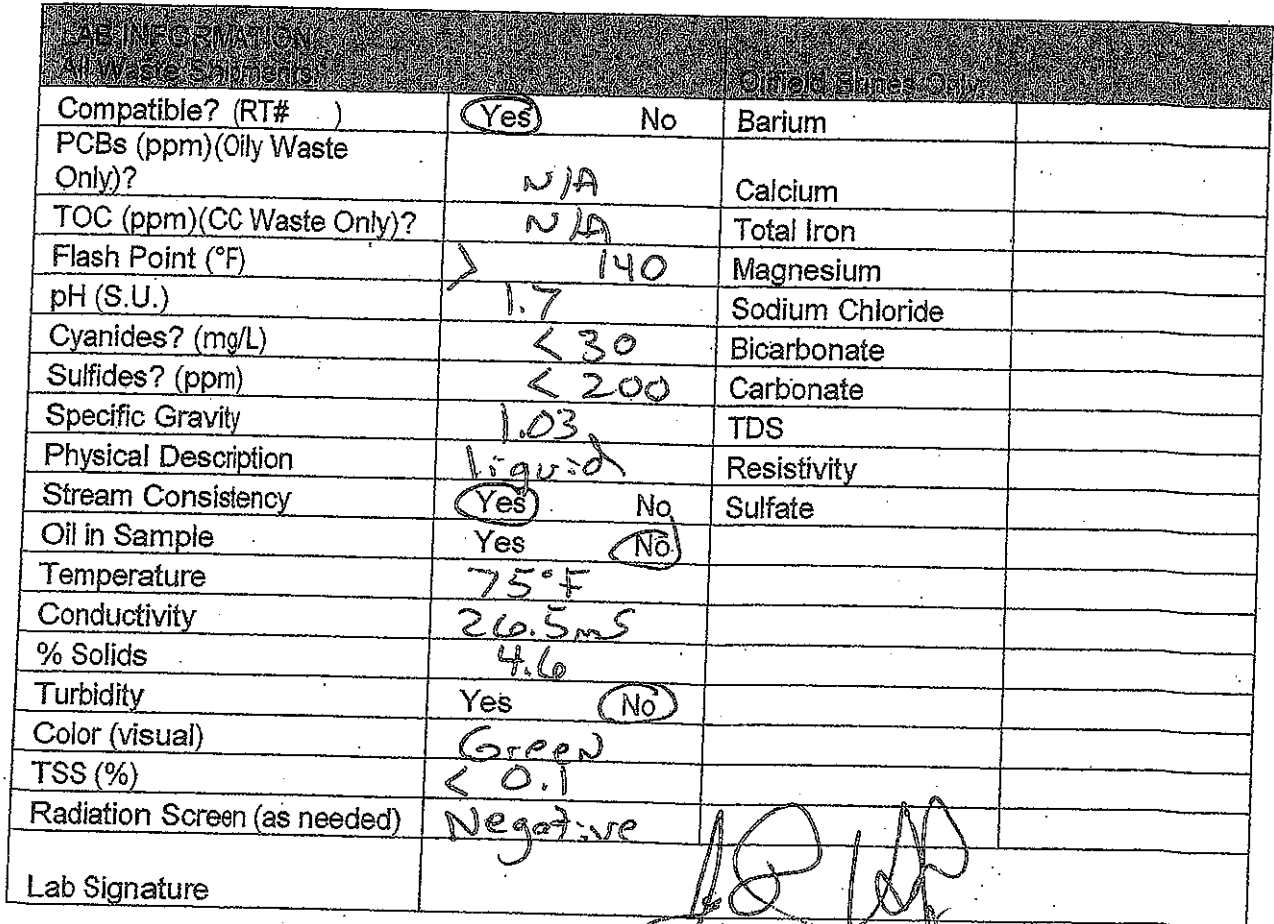 LAB INFORMATION
All Waste Shipments Oilfield Brines Only
Compatible? (RT# ) Yes No Barium
PCBs (ppm)(Oily Waste
Only)? N/A Calcium
TOC (ppm)(CC Waste Only)? N/A Total Iron
Flash Point (°F) > 140 Magnesium
pH (S.U.) 1.7 Sodium Chloride
Cyanides? (mg/L) <30 Bicarbonate
Sulfides? (ppm) < 200 Carbonate
Specific Gravity 1.03 TDS
Physical Description liquid Resistivity
Stream Consistency Yes No Sulfate
Oil in Sample Yes No
Temperature 75°F
Conductivity 26.5mS
% Solids 4.6
Turbidity Yes No
Color (visual) Green
TSS (%) < 0.1
Radiation Screen (as needed) Negative
Lab Signature